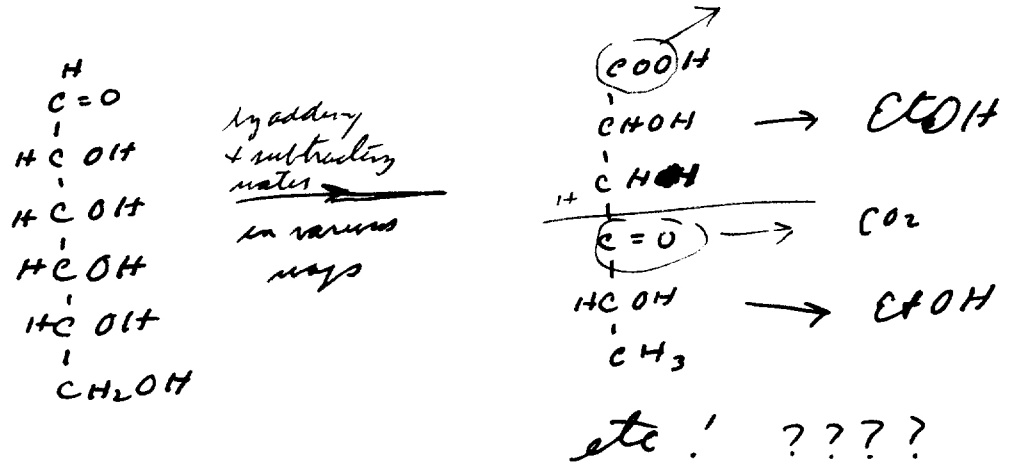 H
C = O
H C OH
H C OH
H C OH
H C OH
CH₂OH
by adding
+ subtracting
water
in various
ways
COOH
CHOH → EtOH
C H H
H
C = O → CO₂
HC OH → EtOH
CH₃
etc! ????